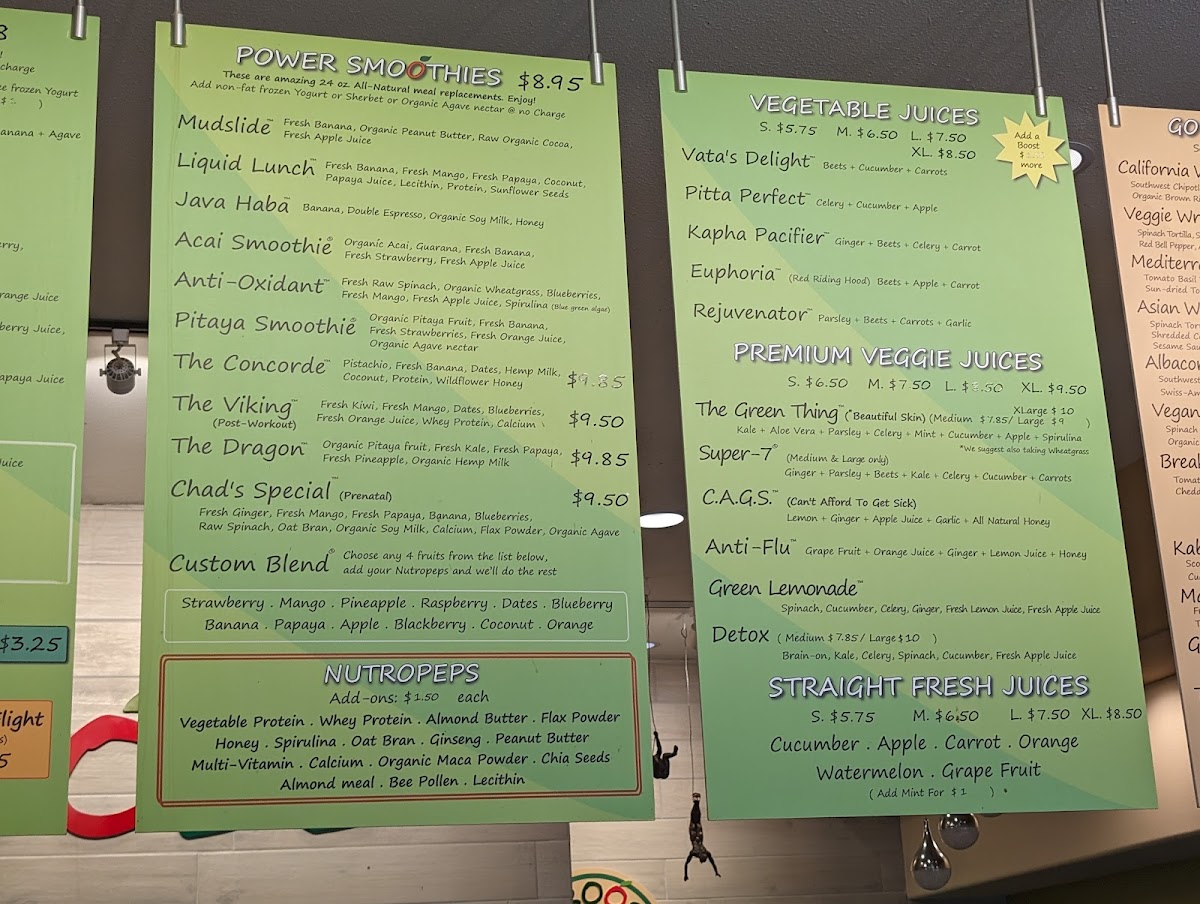 8
!
charge
e frozen Yogurt
$
)
anana + Agave
erry,
range Juice
berry Juice,
apaya Juice
uice
$3.25
light
s)
5
POWER SMOOTHIES $8.95
These are amazing 24 oz. All-Natural meal replacements. Enjoy!
Add non-fat frozen Yogurt or Sherbet or Organic Agave nectar @ no Charge
Mudslide™ Fresh Banana, Organic Peanut Butter, Raw Organic Cocoa,
Fresh Apple Juice
Liquid Lunch™ Fresh Banana, Fresh Mango, Fresh Papaya, Coconut,
Papaya Juice, Lecithin, Protein, Sunflower Seeds
Java Haba™ Banana, Double Espresso, Organic Soy Milk, Honey
Acai Smoothie® Organic Acai, Guarana, Fresh Banana,
Fresh Strawberry, Fresh Apple Juice
Anti-Oxidant™ Fresh Raw Spinach, Organic Wheatgrass, Blueberries,
Fresh Mango, Fresh Apple Juice, Spirulina (Blue green algae)
Pitaya Smoothie® Organic Pitaya Fruit, Fresh Banana,
Fresh Strawberries, Fresh Orange Juice,
Organic Agave nectar
The Concorde™ Pistachio, Fresh Banana, Dates, Hemp Milk,
Coconut, Protein, Wildflower Honey $9.85
The Viking™ Fresh Kiwi, Fresh Mango, Dates, Blueberries,
(Post-Workout) Fresh Orange Juice, Whey Protein, Calcium $9.50
The Dragon™ Organic Pitaya fruit, Fresh Kale, Fresh Papaya,
Fresh Pineapple, Organic Hemp Milk $9.85
Chad's Special™ (Prenatal) $9.50
Fresh Ginger, Fresh Mango, Fresh Papaya, Banana, Blueberries,
Raw Spinach, Oat Bran, Organic Soy Milk, Calcium, Flax Powder, Organic Agave
Custom Blend® Choose any 4 fruits from the list below,
add your Nutropeps and we'll do the rest
Strawberry . Mango . Pineapple . Raspberry . Dates . Blueberry
Banana . Papaya . Apple . Blackberry . Coconut . Orange
NUTROPEPS
Add-ons: $1.50 each
Vegetable Protein . Whey Protein . Almond Butter . Flax Powder
Honey . Spirulina . Oat Bran . Ginseng . Peanut Butter
Multi-Vitamin . Calcium . Organic Maca Powder . Chia Seeds
Almond meal . Bee Pollen . Lecithin
VEGETABLE JUICES
S. $5.75 M. $6.50 L. $7.50
XL. $8.50
Add a
Boost
$
more
Vata's Delight™ Beets + Cucumber + Carrots
Pitta Perfect™ Celery + Cucumber + Apple
Kapha Pacifier™ Ginger + Beets + Celery + Carrot
Euphoria™ (Red Riding Hood) Beets + Apple + Carrot
Rejuvenator™ Parsley + Beets + Carrots + Garlic
PREMIUM VEGGIE JUICES
S. $6.50 M. $7.50 L. $8.50 XL. $9.50
The Green Thing™ ("Beautiful Skin) (Medium $7.85/ Large $9 XLarge $10 )
Kale + Aloe Vera + Parsley + Celery + Mint + Cucumber + Apple + Spirulina
*We suggest also taking Wheatgrass
Super-7® (Medium & Large only)
Ginger + Parsley + Beets + Kale + Celery + Cucumber + Carrots
C.A.G.S.™ (Can't Afford To Get Sick)
Lemon + Ginger + Apple Juice + Garlic + All Natural Honey
Anti-Flu™ Grape Fruit + Orange Juice + Ginger + Lemon Juice + Honey
Green Lemonade™
Spinach, Cucumber, Celery, Ginger, Fresh Lemon Juice, Fresh Apple Juice
Detox ( Medium $7.85/ Large $10 )
Brain-on, Kale, Celery, Spinach, Cucumber, Fresh Apple Juice
STRAIGHT FRESH JUICES
S. $5.75 M. $6.50 L. $7.50 XL. $8.50
Cucumber . Apple . Carrot . Orange
Watermelon . Grape Fruit
( Add Mint For $1 ) *
GO
S
California V
Southwest Chipotl
Organic Brown Ri
Veggie Wr
Spinach Tortilla, S
Red Bell Pepper,
Mediterra
Tomato Basil
Sun-dried To
Asian W
Spinach Tor
Shredded C
Sesame Sau
Albacor
Southwes
Swiss-Am
Vegan
Spinach
Organic
Break
Tomat
Chedd
Kab
Sco
Cu
Ma
T
G